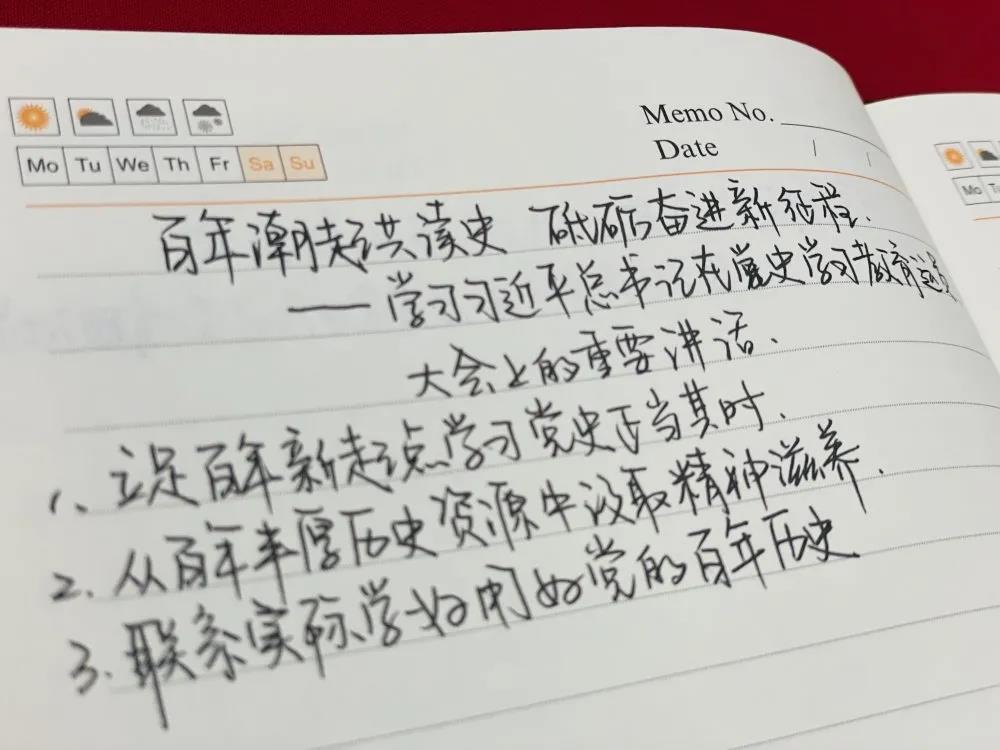 Memo No.
Mo Tu We Th Fr Sa Su
Date
百年潮起共读史 砥砺奋进新征程.
——学习习近平总书记在党史学习教育动员
大会上的重要讲话.
1、立足百年新起点学习党史正当其时.
2、从百年丰厚历史资源中汲取精神滋养.
3、联系实际学好用好党的百年历史
Mo